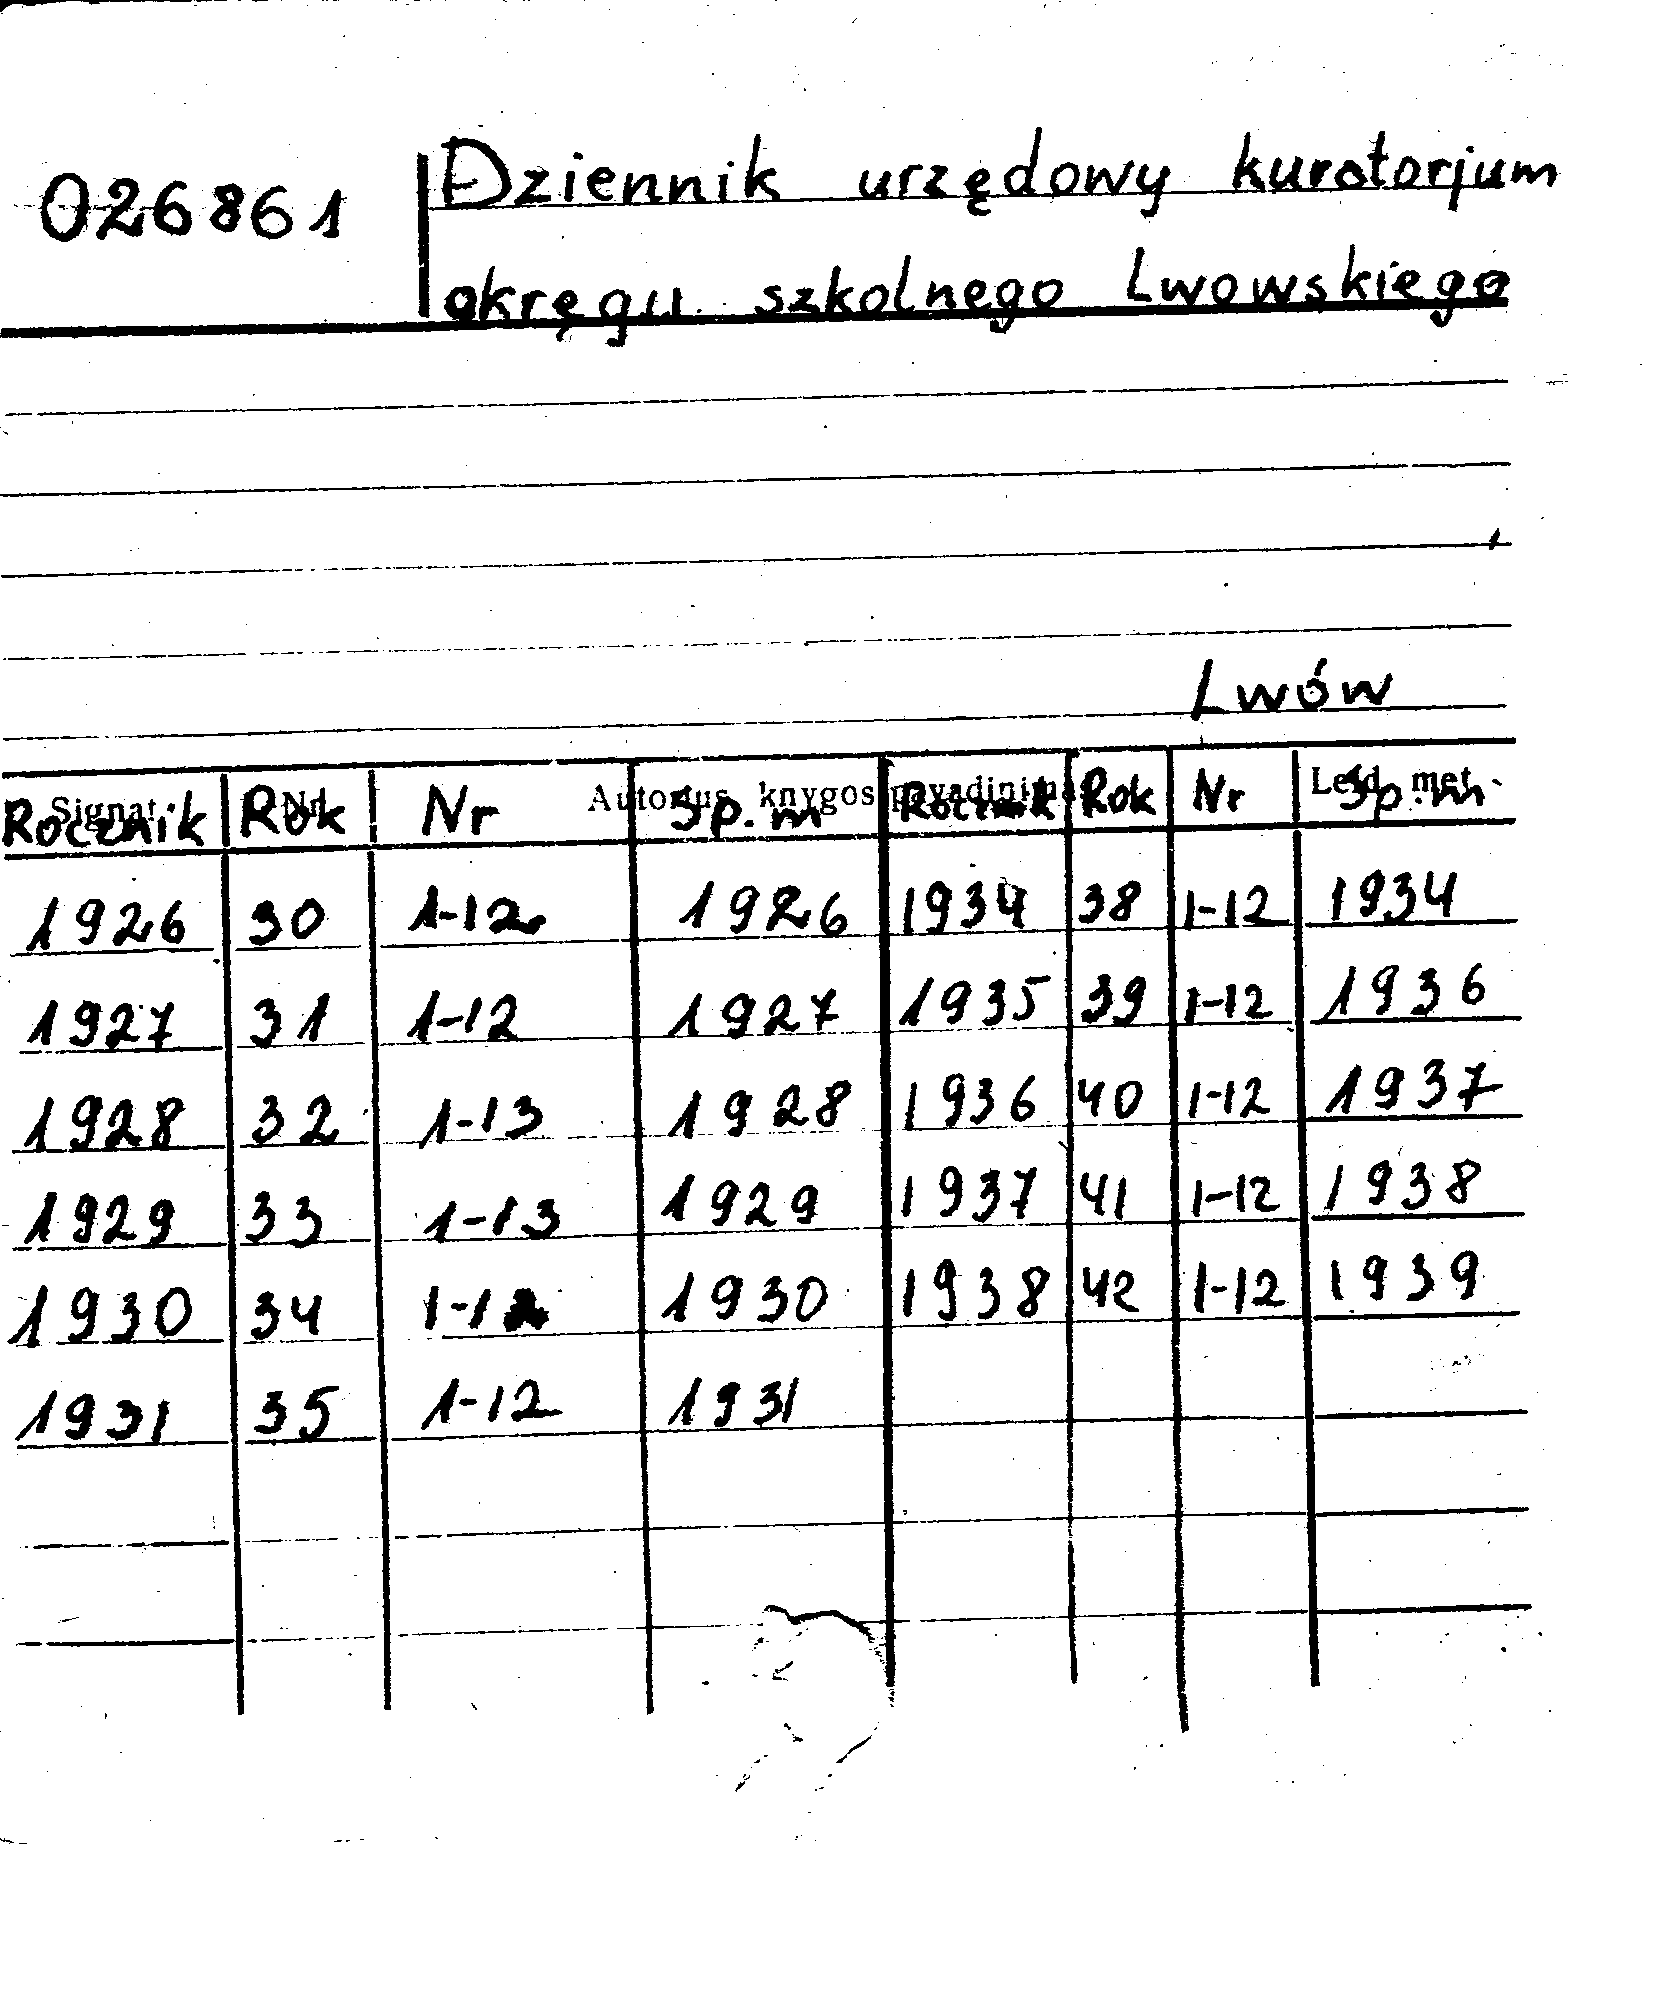 026861 Dziennik urzędowy kuratorjum
okręgu szkolnego Lwowskiego
Lwów
Signat. Nr. Autorius, knygos pavadinimas Leid. met.
Rocznik Rok Nr Sp. m Rocznik Rok Nr Sp. m
1926 30 1-12 1926 1934 38 1-12 1934
1927 31 1-12 1927 1935 39 1-12 1936
1928 32 1-13 1928 1936 40 1-12 1937
1929 33 1-13 1929 1937 41 1-12 1938
1930 34 1-12 1930 1938 42 1-12 1939
1931 35 1-12 1931